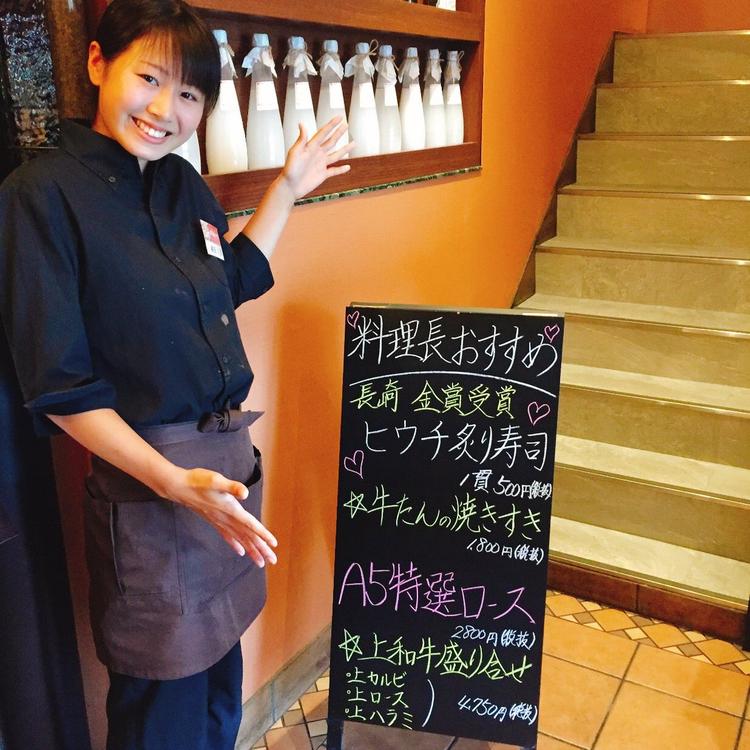 料理長おすすめ
長崎 金賞受賞
ヒウチ炙り寿司
1貫500円(税抜)
☆牛たんの焼きすき
1.800円(税抜)
A5特選ロース
2800円(税抜)
☆上和牛盛り合せ
◦上カルビ
◦上ロース
◦上ハラミ
4.750円(税抜)